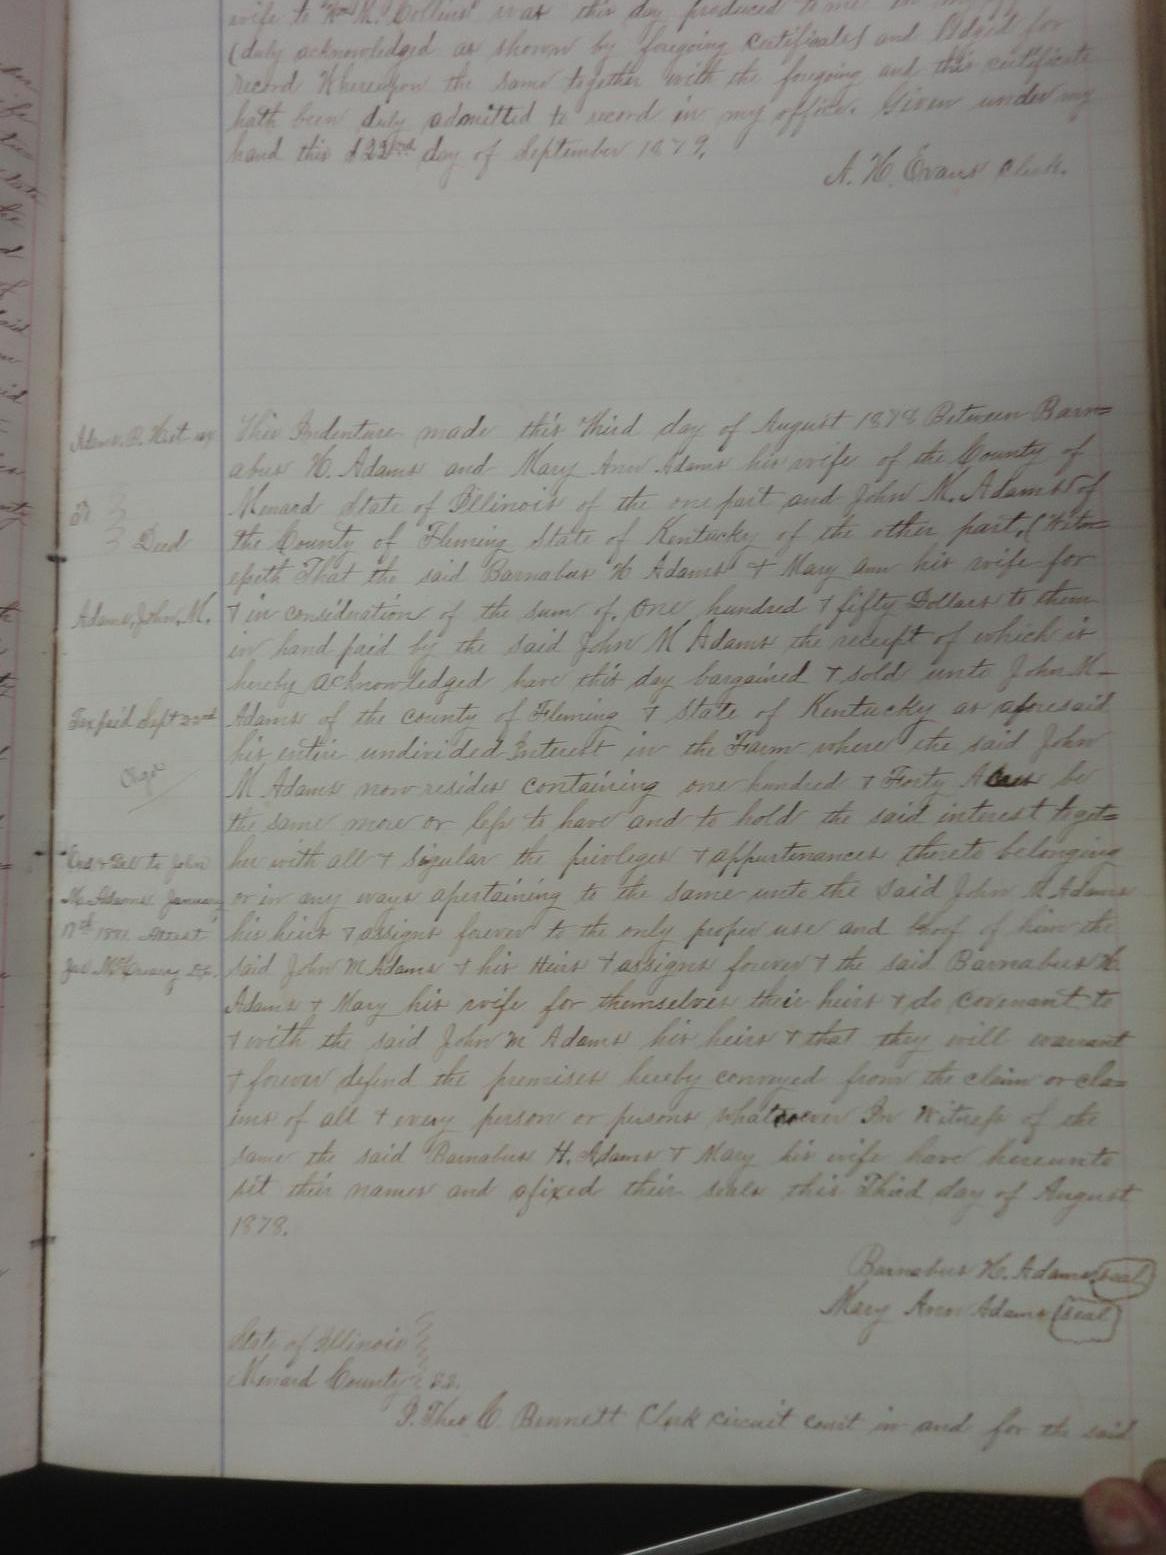 wife to Wm M. Collins was this day produced to me in my
(duly acknowledged as shown by foregoing certificate) and lodged for
record Whereupon the same together with the foregoing and this certificate
hath been duly admitted to record in my office. Given under my
hand this 22nd day of September 1879.
A. H. Evans Clerk.
Adams, B. H et ux
To
Deed
Adams, John, M.
Tax paid Sept 22nd
Exd & Del to John
M. Adams January
17th 1881 Attest
Jas McCreary D.C.
This Indenture made this Third day of August 1878 Between Barn=
abus H. Adams and Mary Ann Adams his wife of the County of
Menard State of Illinois of the one part and John M. Adams of
the County of Fleming State of Kentucky of the other part, (Witn=
esseth That the said Barnabus H Adams & Mary ann his wife for
& in consideration of the sum of, One hundred & fifty Dollars to them
in hand paid by the said John M Adams the receipt of which is
hereby acknowledged have this day bargained & sold unto John M-
Adams of the county of Fleming & State of Kentucky as aforesaid
his entire undivided Interest in the Farm where the said John
M Adams now resides containing one hundred & Forty Acres be
the same more or less to have and to hold the said interest toget=
her with all & sigular the privleges & appurtenances thereto belonging
or in any ways apertaining to the same unto the said John M Adams
his heirs & assigns forever to the only proper use and behoof of him the
said John M Adams & his Heirs & assigns forever & the said Barnabus H.
Adams & Mary his wife for themselves their heirs & do covenant to
& with the said John M Adams his heirs & that they will warrant
& forever defend the premises hereby conveyed from the claim or cla=
ims of all & every person or persons whatsoever In Witness of the
same the said Barnabus H. Adams & Mary his wife have hereunto
set their names and afixed their seals this Third day of August
1878.
Barnabus H. Adams seal
Mary Ann Adams (seal)
State of Illinois
Menard County SS.
I. Theo C. Bennett Clerk circuit court in and for the said